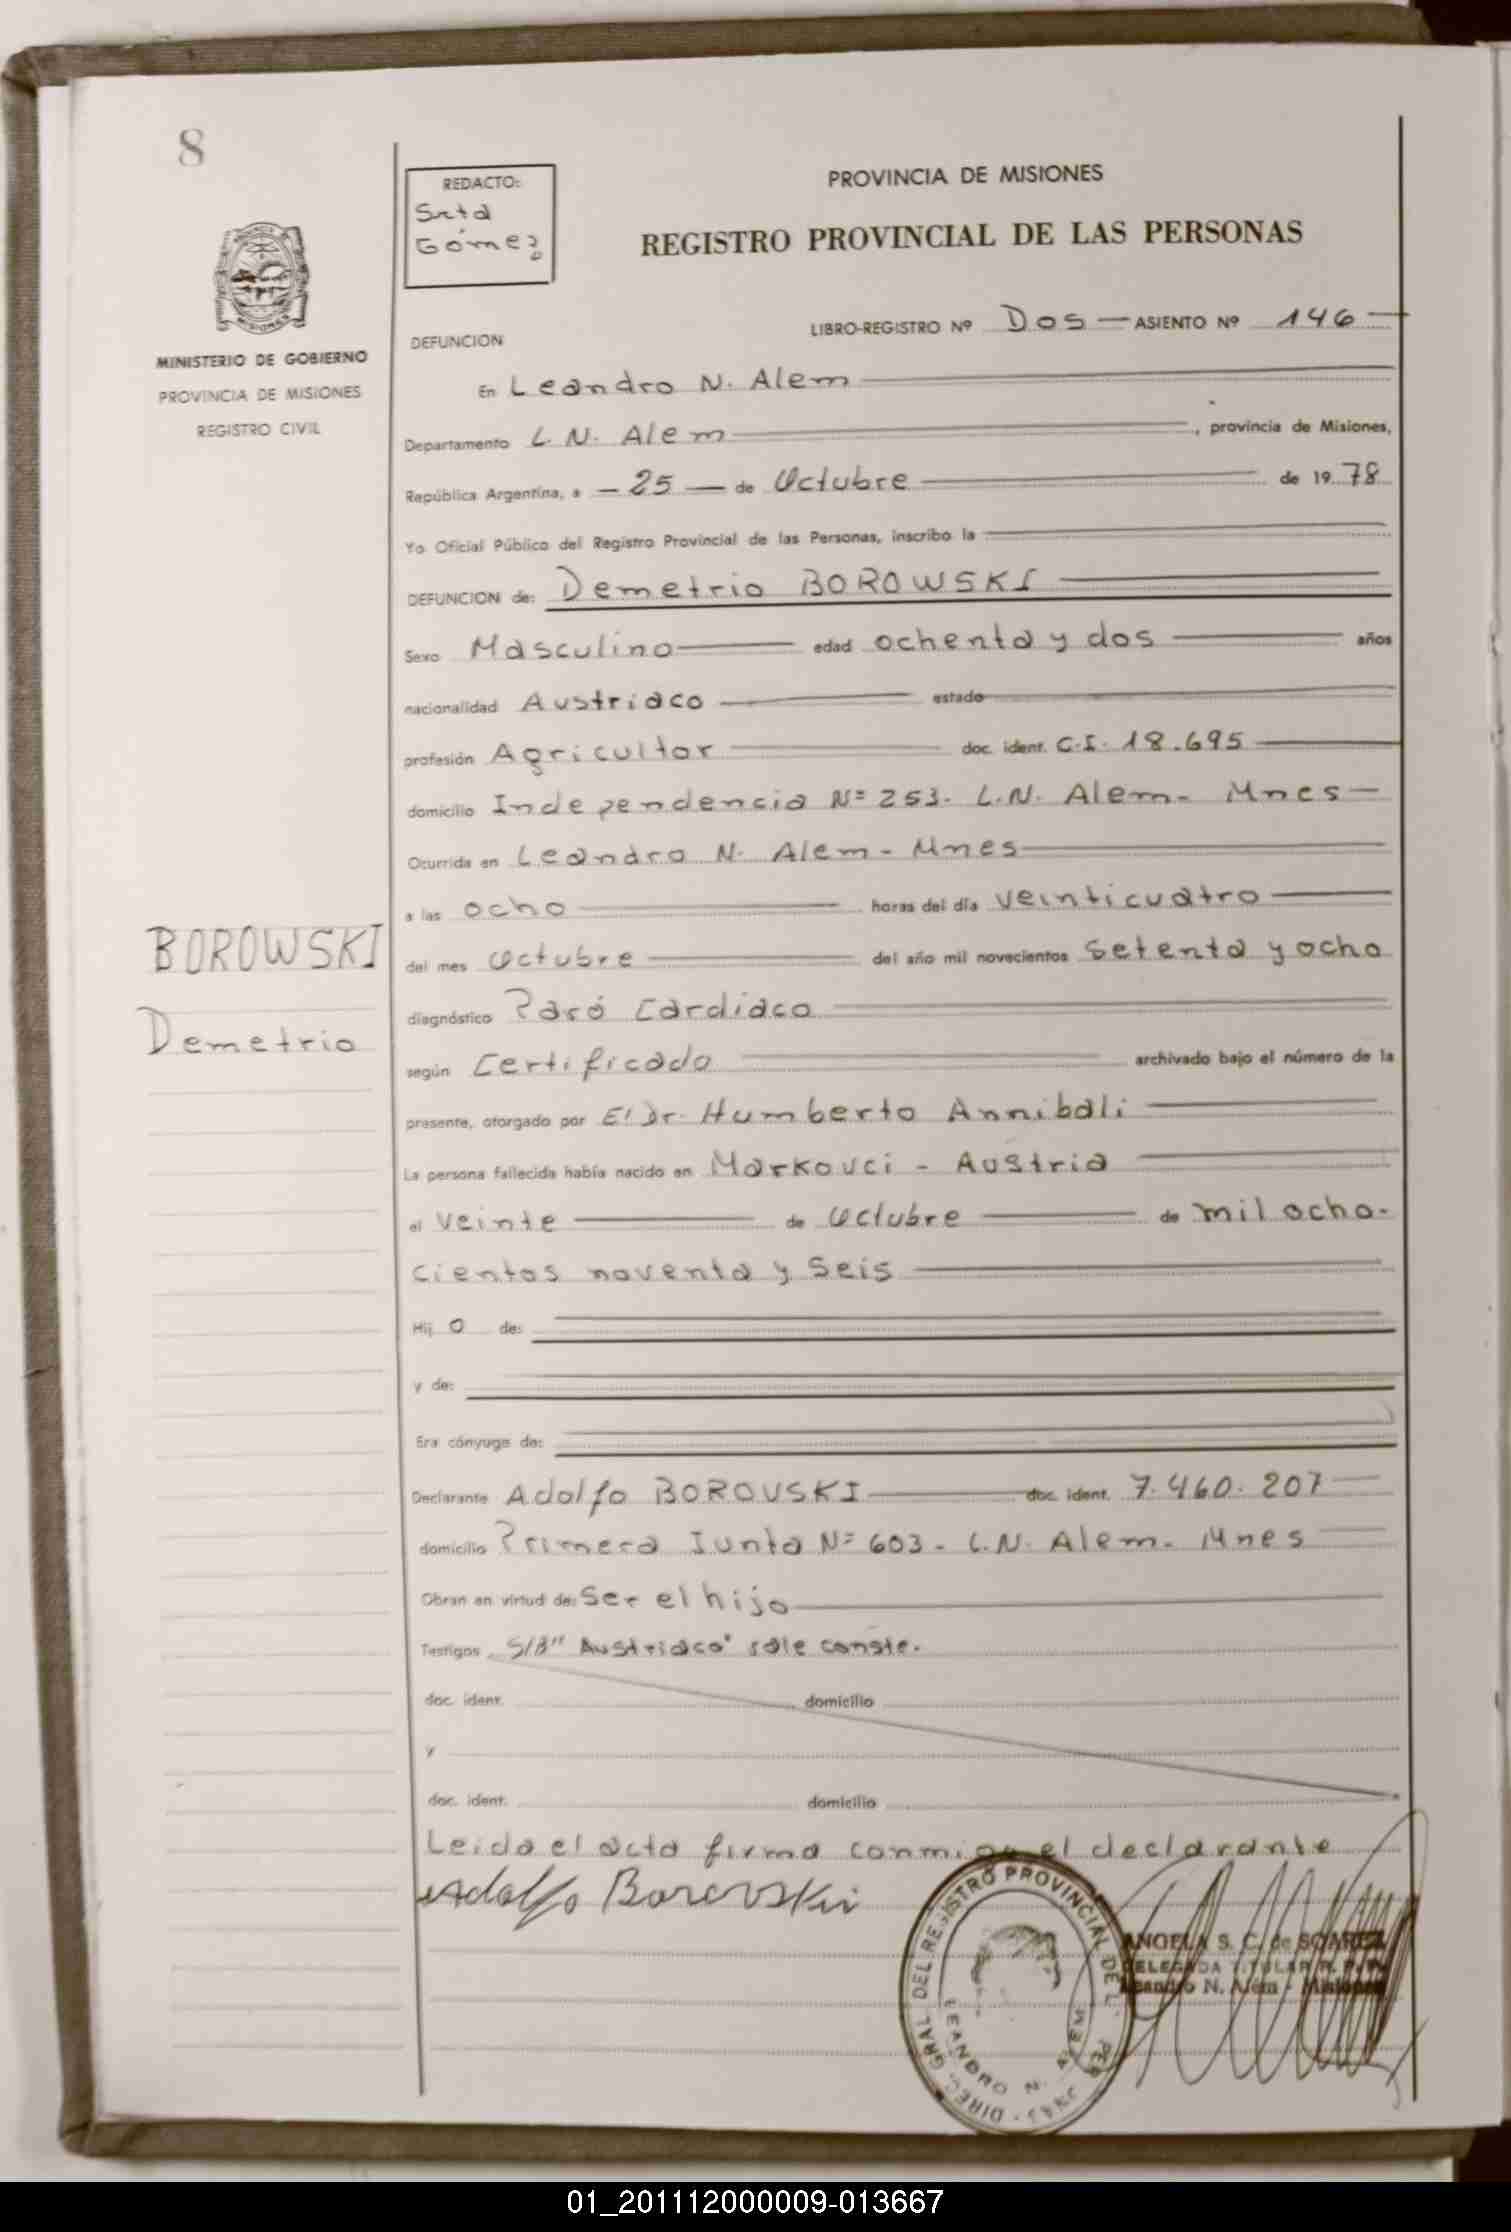 8
REDACTO:
Srta
Gómez
PROVINCIA DE MISIONES
REGISTRO PROVINCIAL DE LAS PERSONAS
MINISTERIO DE GOBIERNO
PROVINCIA DE MISIONES
REGISTRO CIVIL
DEFUNCION
LIBRO-REGISTRO Nº Dos — ASIENTO Nº 146 —
En Leandro N. Alem
Departamento L. N. Alem , provincia de Misiones,
República Argentina, a — 25 — de Octubre de 19 78
Yo Oficial Público del Registro Provincial de las Personas, inscribo la
DEFUNCION de: Demetrio BOROWSKI
Sexo Masculino edad ochenta y dos años
nacionalidad Austriaco estado
profesión Agricultor doc. ident. C.I. 18.695
domicilio Independencia Nº 253. L.N. Alem - Mnes —
Ocurrida en Leandro N. Alem - Mnes
a las ocho horas del día veinticuatro
del mes Octubre del año mil novecientos setenta y ocho
diagnóstico Paró Cardíaco
según Certificado archivado bajo el número de la
presente, otorgado por El Dr. Humberto Annibali
La persona fallecida había nacido en Markovci - Austria
el veinte de Octubre de mil ocho-
cientos noventa y seis
Hij o de:
y de:
Era cónyuge de:
Declarante Adolfo BOROVSKI doc. ident. 7.460.207
domicilio Primera Junta Nº 603 - L.N. Alem - Mnes
Obran en virtud de: Ser el hijo
Testigos S/B" Austriaco" vale conste.
doc. ident. domicilio
y
doc. ident. domicilio
Leida el acta firma conmigo el declarante
Adolfo Borovski
BOROWSKI
Demetrio
DIREC. GRAL DEL REGISTRO PROVINCIAL DE L PERSONAS
LEANDRO N. ALEM
ANGELA S. C. de SOAREZ
DELEGADA TITULAR R. P. P.
Leandro N. Alem - Misiones
01_201112000009-013667